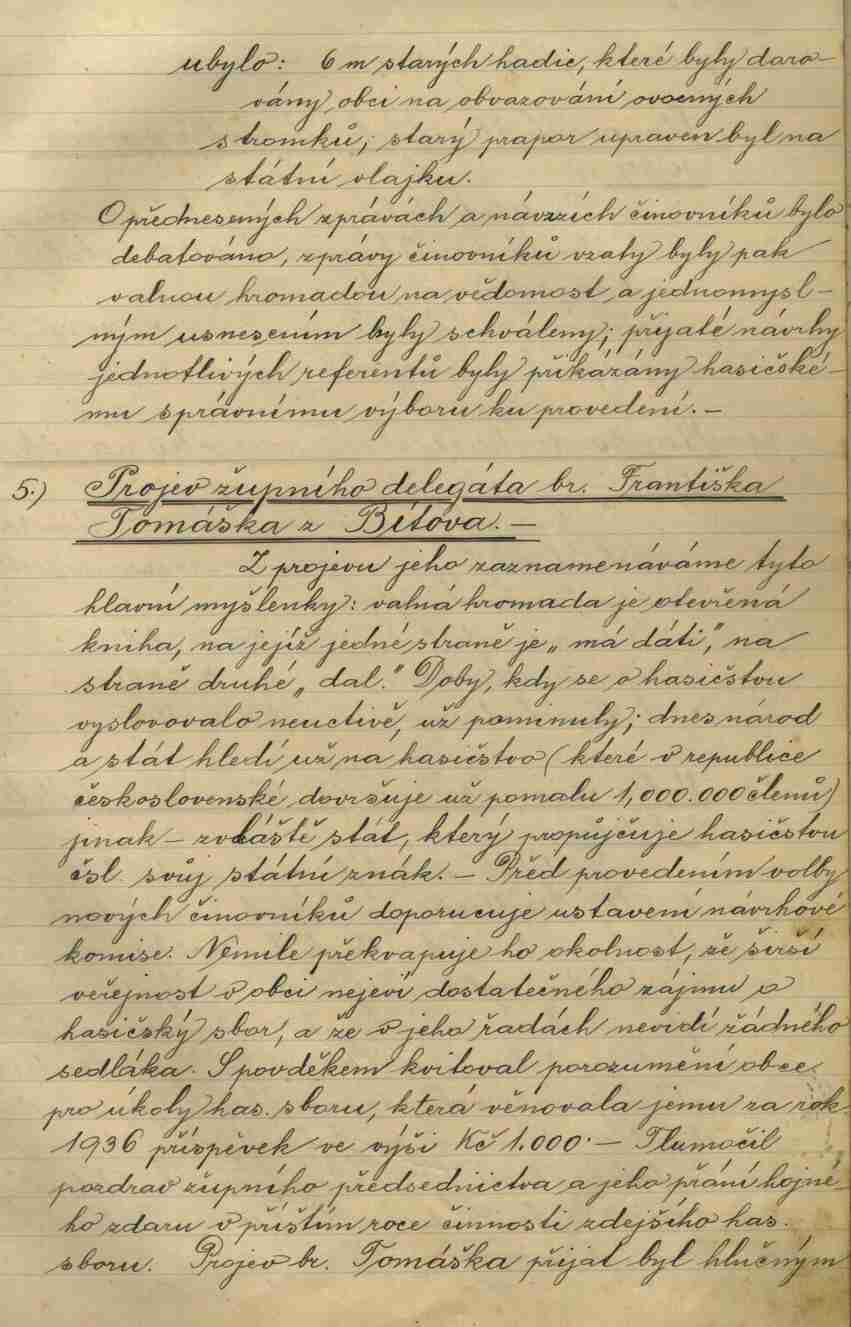 ubylo: 6 m starých hadic, které byly daro-
vány obci na obvazování ovocných
stromků; starý prapor upraven byl na
státní vlajku.
O přednesených zprávách a návrzích činovníků bylo
debatováno, zprávy činovníků vzaty byly pak
valnou hromadou na vědomost a jednomysl-
ným usnesením byly schváleny; přijaté návrhy
jednotlivých referentů byly přikázány hasičské-
mu správnímu výboru ku provedení. -
5.) Projev župního delegáta br. Františka
Tomáška z Bítova. -
Z projevu jeho zaznamenáváme tyto
hlavní myšlenky: valná hromada je otevřená
kniha, na jejíž jedné straně je „má dáti", na
straně druhé „dal." Doby, kdy se o hasičstvu
vyslovovalo neuctivě, už pominuly; dnes národ
a stát hledí už na hasičstvo (které v republice
československé dovršuje už pomalu 1,000.000 členů)
jinak - zvláště stát, který propůjčuje hasičstvu
čsl. svůj státní znák. - Před provedením volby
nových činovníků doporucuje ustavení návrhové
komise. Nemile překvapuje ho okolnost, že širší
veřejnost v obci nejeví dostatečného zájmu o
hasičský sbor, a že v jeho řadách nevidí žádného
sedláka. S povděkem kvitoval porozumění obce
pro úkoly has. sboru, která věnovala jemu za rok
1936 příspěvek ve výši Kč 1.000·- Tlumočil
pozdrav župního předsednictva a jeho přání hojné-
ho zdaru v příštím roce činnosti zdejšího has.
sboru. Projev br. Tomáška přijat byl hlučným